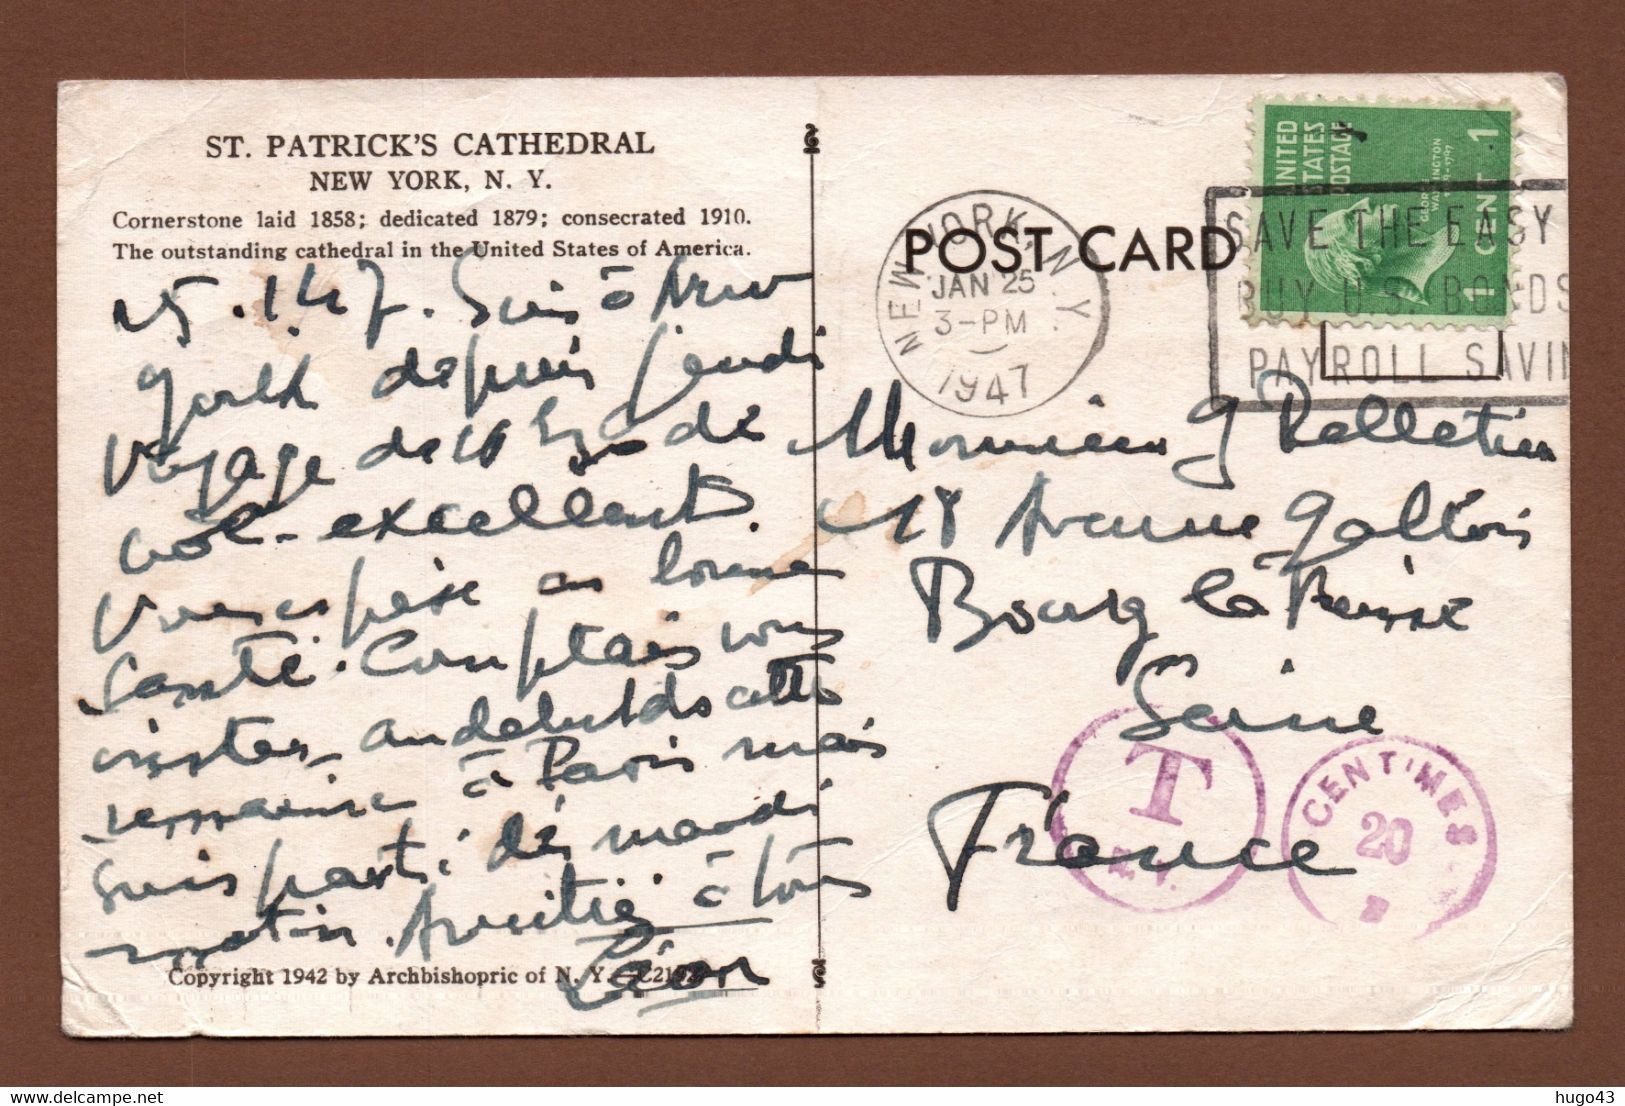 ST. PATRICK'S CATHEDRAL
NEW YORK, N. Y.
Cornerstone laid 1858; dedicated 1879; consecrated 1910.
The outstanding cathedral in the United States of America.
25.1.47. Suis à New
York depuis jeudi
Voyage de de
vol - excellent.
Vous espère en bonne
Santé. Comptais vous
visiter au début de cette
semaine à Paris mais
suis parti dès mardi
matin. Amitié à tous
Léon
Copyright 1942 by Archbishopric of N. Y.
POST CARD
NEW YORK, N.Y.
JAN 25
3-PM
1947
UNITED
STATES
POSTAGE
GEORGE
WASHINGTON
1 CENT 1
SAVE THE EASY
BUY U.S. BONDS
PAYROLL SAVIN
Monsieur G Pelletier
18 Avenue Galliéni
Bourg la Reine
Seine
France
T
N.Y.
CENTIMES
20
hugo43